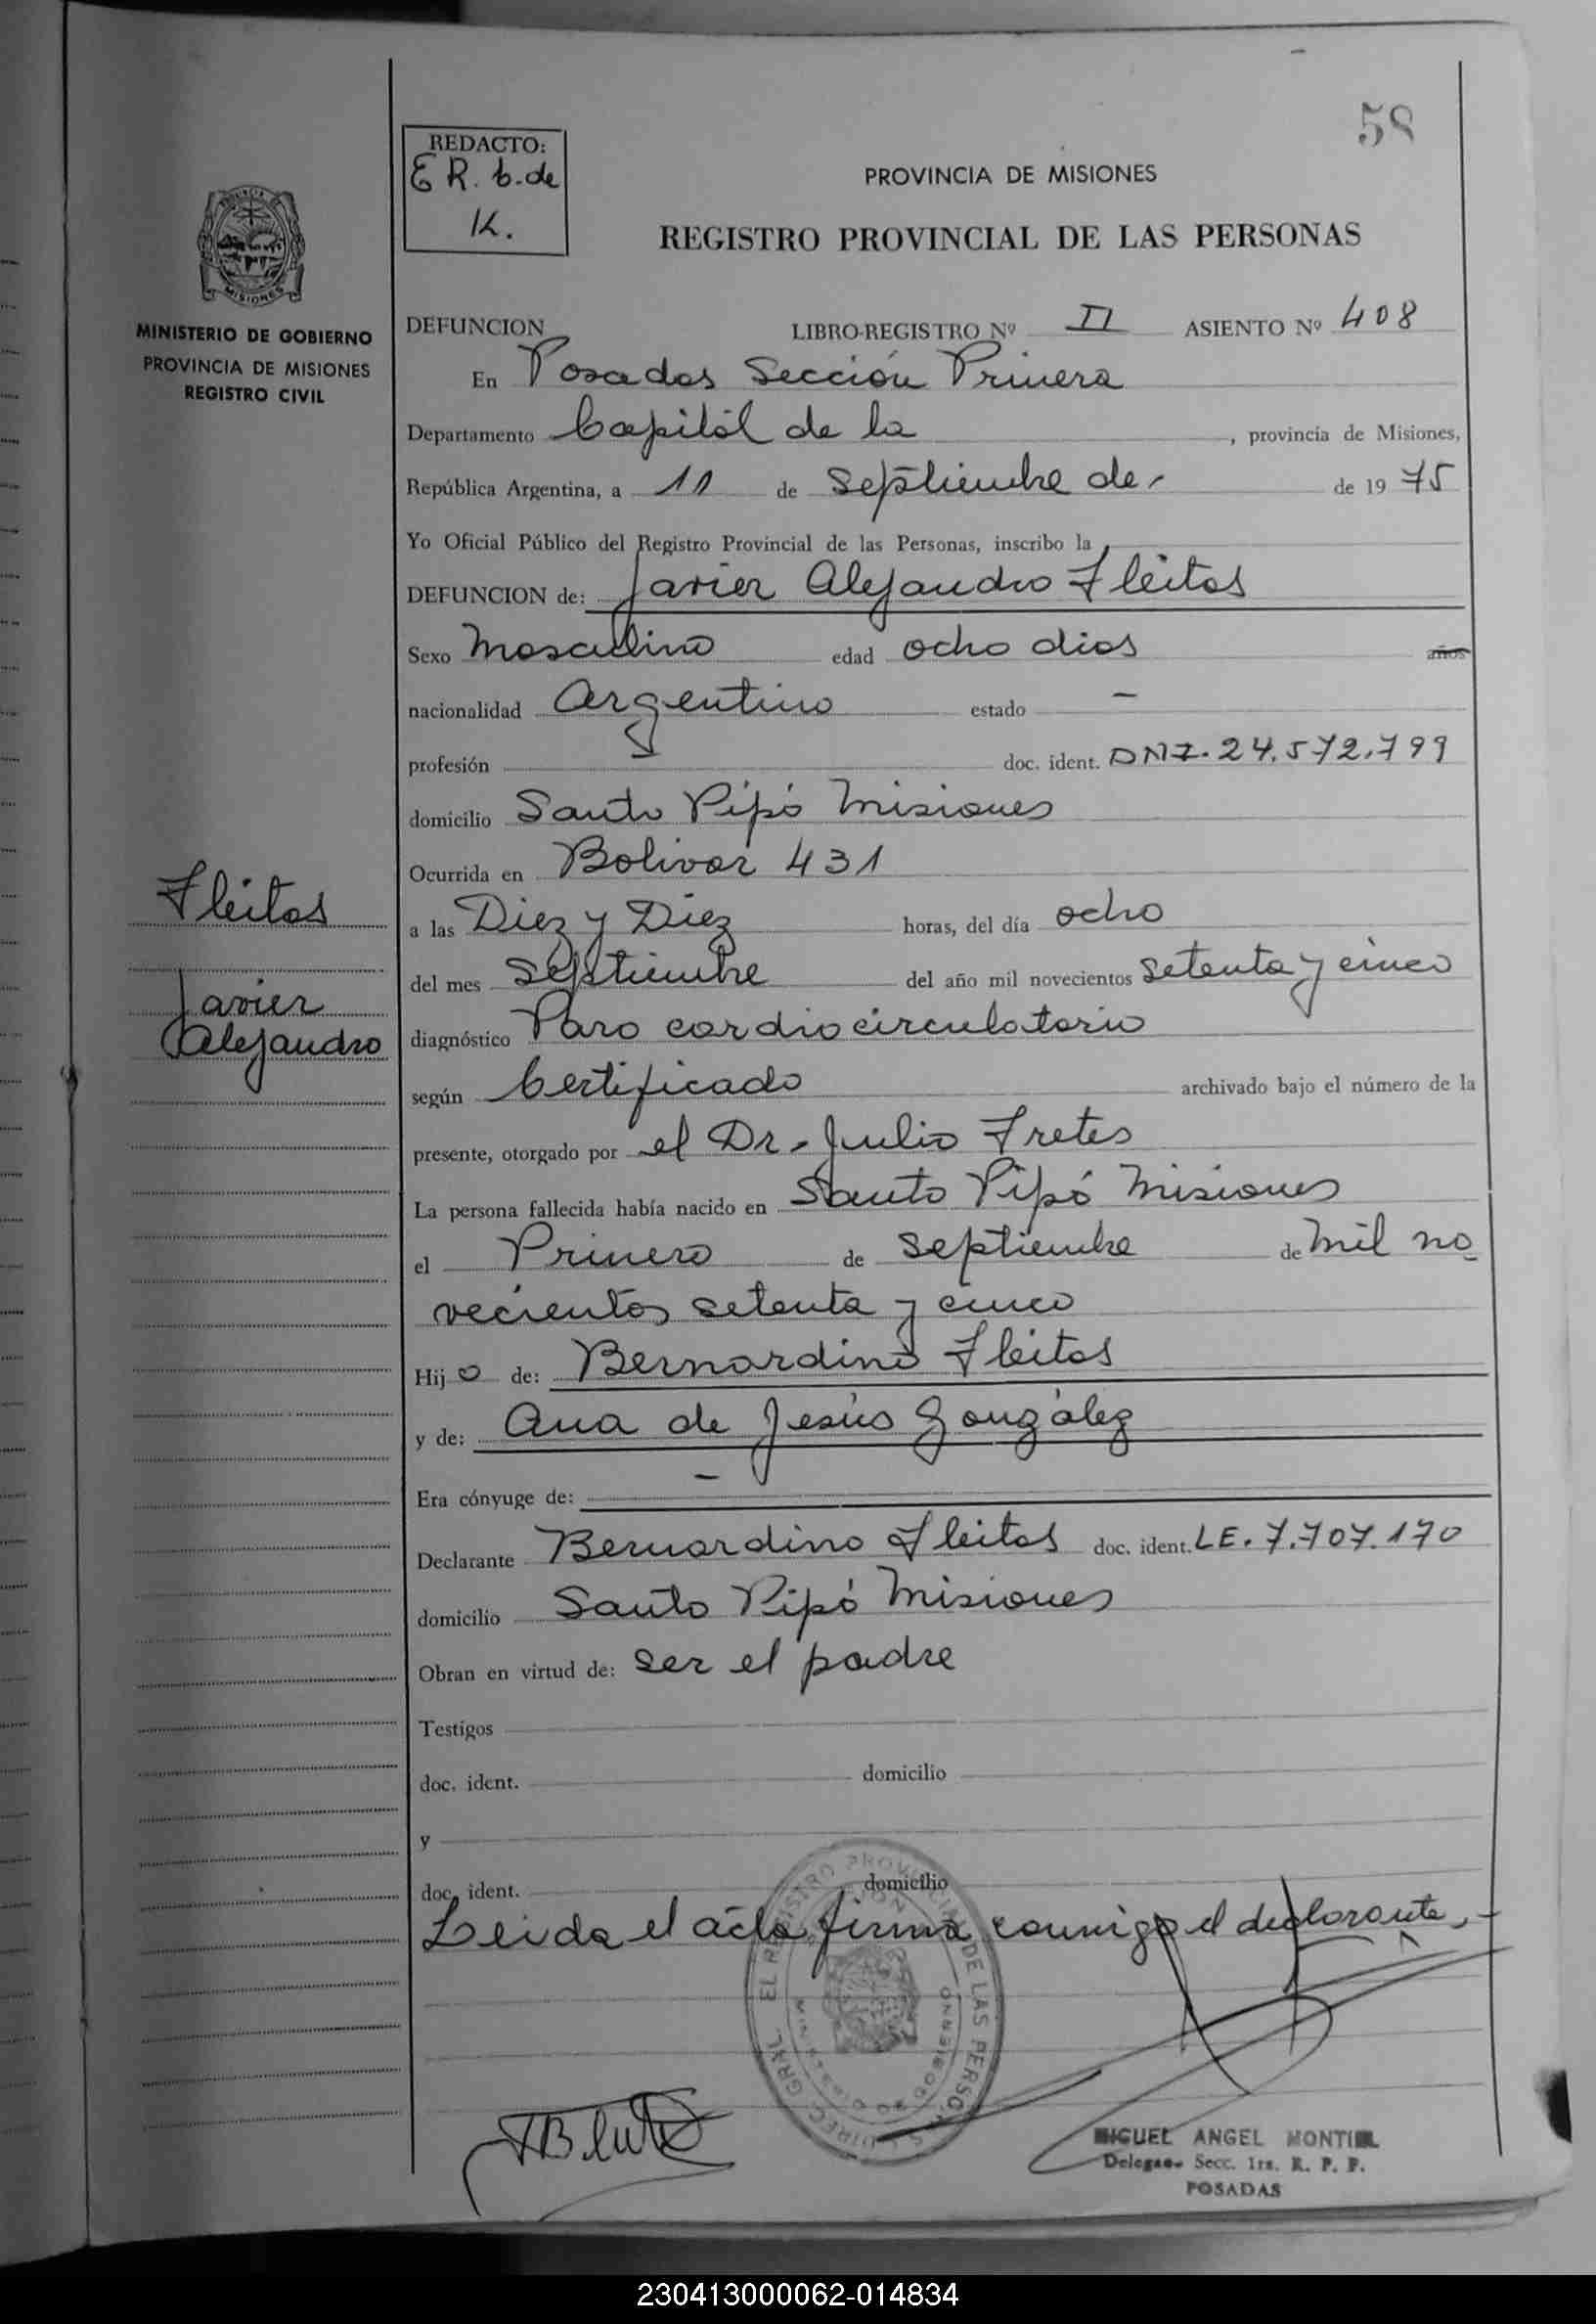 58
REDACTO:
E R. b. de
K.
PROVINCIA DE MISIONES
REGISTRO PROVINCIAL DE LAS PERSONAS
MISIONES
MINISTERIO DE GOBIERNO
PROVINCIA DE MISIONES
REGISTRO CIVIL
DEFUNCION LIBRO-REGISTRO Nº II ASIENTO Nº 408
En Posadas Sección Primera
Departamento Capitál de la, provincia de Misiones,
República Argentina, a 11 de Septiembre de- de 1975
Yo Oficial Público del Registro Provincial de las Personas, inscribo la
DEFUNCION de: Javier Alejandro Fleitas
Sexo Masculino edad ocho dias años
nacionalidad Argentino estado -
profesión doc. ident. DNI. 24.572.799
domicilio Santo Pipó Misiones
Ocurrida en Bolivar 431
Fleitas
a las Diez y Diez horas, del día ocho
del mes Septiembre del año mil novecientos Setenta y cinco
Javier
Alejandro
diagnóstico Paro cardiocirculatorio
según Certificado archivado bajo el número de la
presente, otorgado por el Dr. Julio Fretes
La persona fallecida había nacido en Santo Pipó Misiones
el Primero de Septiembre de Mil no
vecientos setenta y cinco
Hijo de: Bernardino Fleitas
y de: Ana de Jesús González
Era cónyuge de: -
Declarante Bernardino Fleitas doc. ident. LE. 7.707.170
domicilio Santo Pipó Misiones
Obran en virtud de: ser el padre
Testigos
doc. ident. domicilio
y
doc. ident. domicilio
Leida el acta firma conmigo el declarante.-
DIREC. GRAL. EL REGISTRO PROVINCIAL DE LAS PERSO
MINISTERIO DE GOBIERNO
MIGUEL ANGEL MONTIEL
Delegado Secc. 1ra. R. P. P.
POSADAS
230413000062-014834